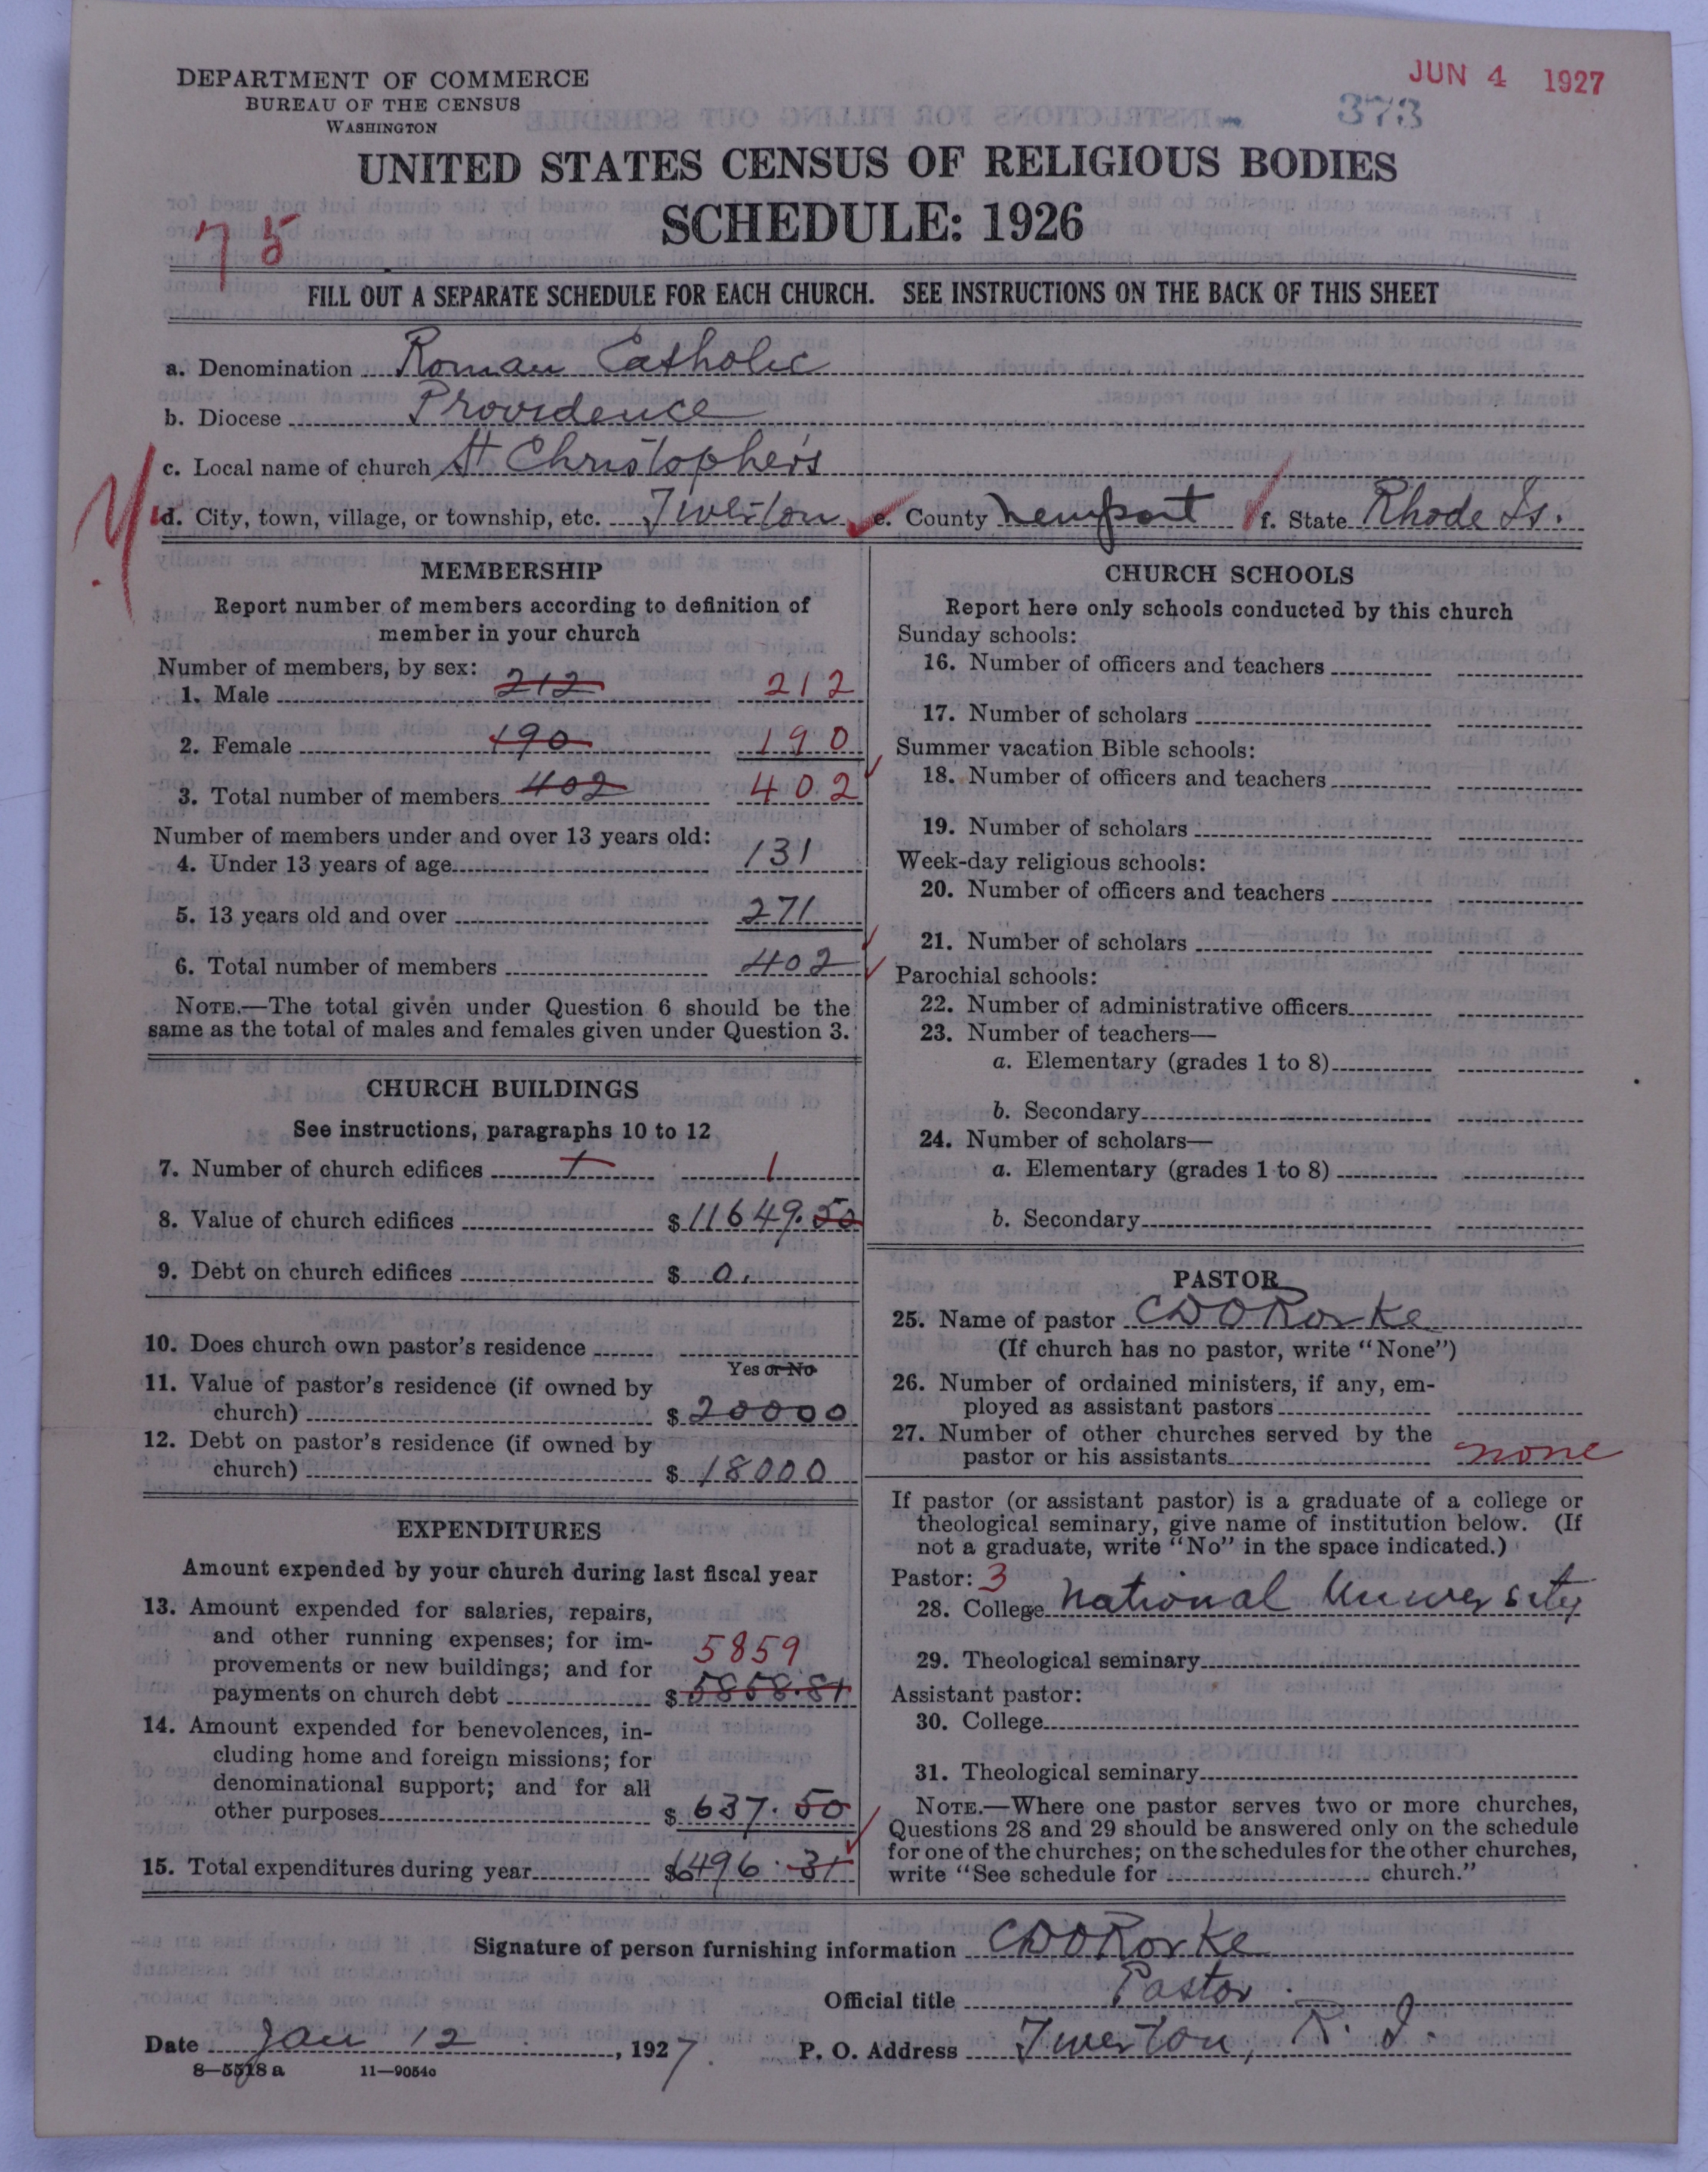 DEPARTMENT OF COMMERCE
BUREAU OF THE CENSUS
WASHINGTON
JUN 4 1927
373
UNITED STATES CENSUS OF RELIGIOUS BODIES
SCHEDULE: 1926
75
FILL OUT A SEPARATE SCHEDULE FOR EACH CHURCH. SEE INSTRUCTIONS ON THE BACK OF THIS SHEET
a. Denomination Roman Catholic
b. Diocese Providence
c. Local name of church St Christopher's
d. City, town, village, or township, etc. Tiverton e. County Newport f. State Rhode Is.
MEMBERSHIP
Report number of members according to definition of
member in your church
Number of members, by sex:
1. Male 212 212
2. Female 190 190
3. Total number of members 402 402
Number of members under and over 13 years old:
4. Under 13 years of age 131
5. 13 years old and over 271
6. Total number of members 402
NOTE.—The total given under Question 6 should be the
same as the total of males and females given under Question 3.
CHURCH BUILDINGS
See instructions, paragraphs 10 to 12
7. Number of church edifices 1 1
8. Value of church edifices $11649.50
9. Debt on church edifices $ 0.
10. Does church own pastor's residence
Yes or No
11. Value of pastor's residence (if owned by
church) $ 20000
12. Debt on pastor's residence (if owned by
church) $ 18000
EXPENDITURES
Amount expended by your church during last fiscal year
13. Amount expended for salaries, repairs,
and other running expenses; for im-
provements or new buildings; and for 5859
payments on church debt $ 5858.81
14. Amount expended for benevolences, in-
cluding home and foreign missions; for
denominational support; and for all
other purposes $ 637.50
15. Total expenditures during year $6496.31
CHURCH SCHOOLS
Report here only schools conducted by this church
Sunday schools:
16. Number of officers and teachers
17. Number of scholars
Summer vacation Bible schools:
18. Number of officers and teachers
19. Number of scholars
Week-day religious schools:
20. Number of officers and teachers
21. Number of scholars
Parochial schools:
22. Number of administrative officers
23. Number of teachers—
a. Elementary (grades 1 to 8)
b. Secondary
24. Number of scholars—
a. Elementary (grades 1 to 8)
b. Secondary
PASTOR
25. Name of pastor CDORorke
(If church has no pastor, write "None")
26. Number of ordained ministers, if any, em-
ployed as assistant pastors
27. Number of other churches served by the
pastor or his assistants none
If pastor (or assistant pastor) is a graduate of a college or
theological seminary, give name of institution below. (If
not a graduate, write "No" in the space indicated.)
Pastor: 3
28. College National University
29. Theological seminary
Assistant pastor:
30. College
31. Theological seminary
NOTE.—Where one pastor serves two or more churches,
Questions 28 and 29 should be answered only on the schedule
for one of the churches; on the schedules for the other churches,
write "See schedule for church."
Signature of person furnishing information CDORorke
Official title Pastor
Date Jan 12, 1927. P. O. Address Tiverton, R. I.
8—5518 a 11—9054c